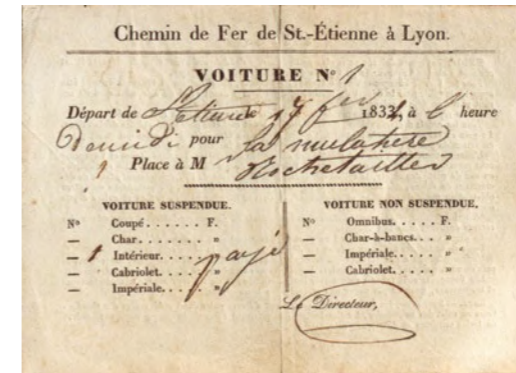 Chemin de Fer de St.-Étienne à Lyon.
VOITURE No 1
Départ de St Etienne le 17 fev 1834, à l' heure
De midi pour la mulatiere
1 Place à M Rochetaillée
VOITURE SUSPENDUE.
No Coupé...... F.
— Char....... »
— 1 Intérieur.... » payé
— Cabriolet.... »
— Impériale.... »
VOITURE NON SUSPENDUE.
No Omnibus..... F.
— Char-à-bancs... »
— Impériale.... »
— Cabriolet.... »
Le Directeur,